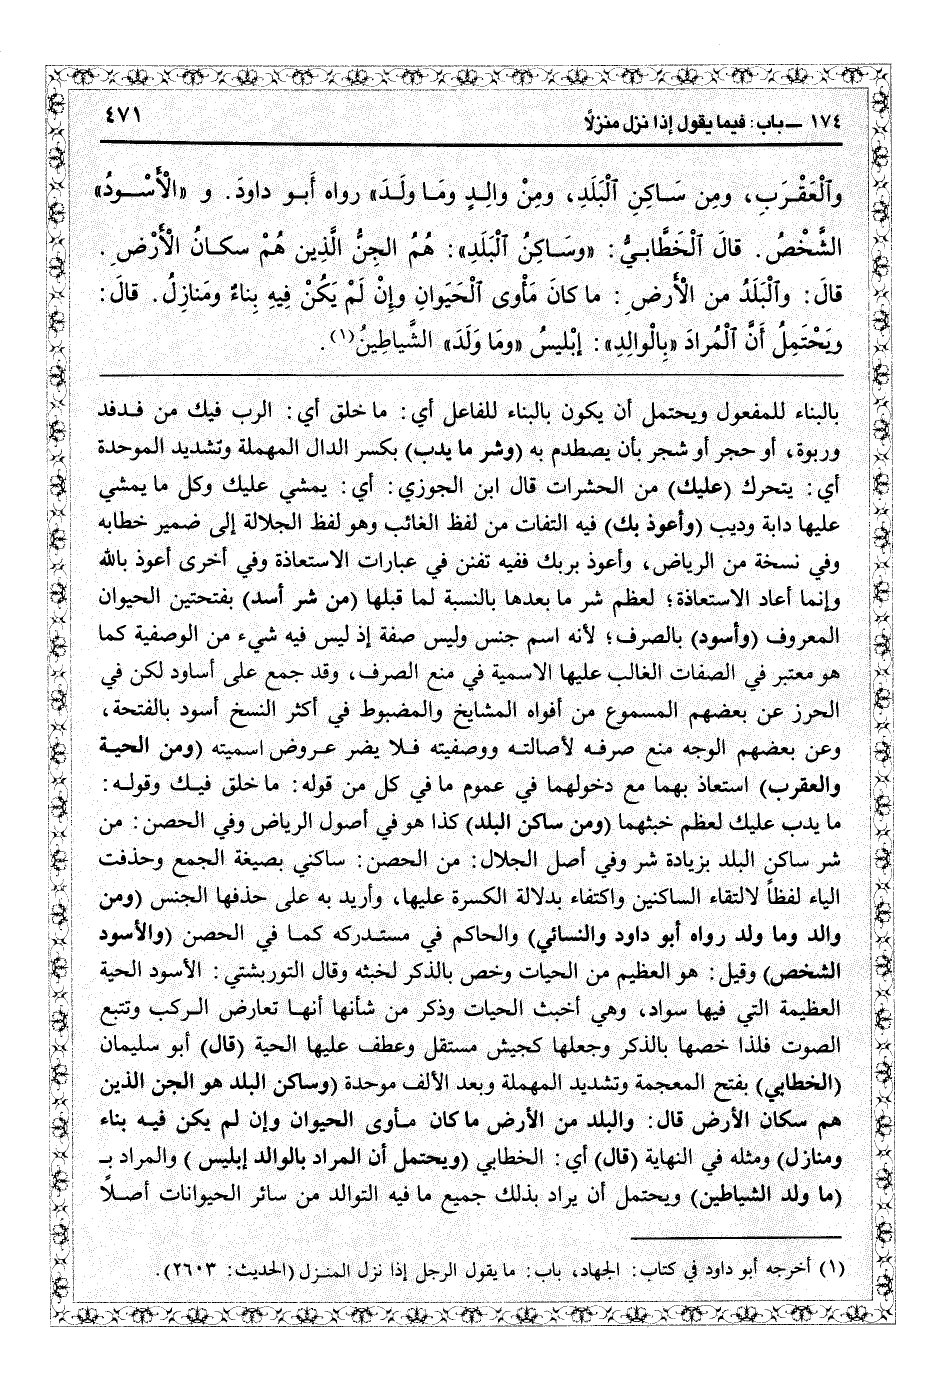 ١٧٤ ــ باب: فيما يقول إذا نزل منزلاً
٤٧١
وٱلْعَقْرَبِ، ومِن سَاكِنِ ٱلْبَلَدِ، ومِنْ والِدٍ ومَا ولَدَ» رواه أَبو داودَ. و «الْأَسْودُ»
الشَّخْصُ. قالَ ٱلْخَطَّابيُّ: «وسَاكِنُ ٱلْبَلَدِ»: هُمُ الجِنُّ الَّذِين هُمْ سكانُ الْأَرْضِ.
قالَ: وٱلْبَلَدُ من الْأَرضِ: ما كانَ مَأْوى ٱلْحَيَوانِ وإِنْ لَمْ يَكُنْ فِيهِ بِناءٌ ومَنازِلُ. قالَ:
ويَحْتَمِلُ أَنَّ ٱلْمُرادَ «بِالْوالِدِ»: إبْلِيسُ «ومَا وَلَدَ» الشَّياطِينُ(١).
بالبناء للمفعول ويحتمل أن يكون بالبناء للفاعل أي: ما خلق أي: الرب فيك من فدفد
وربوة، أو حجر أو شجر بأن يصطدم به (وشر ما يدب) بكسر الدال المهملة وتشديد الموحدة
أي: يتحرك (عليك) من الحشرات قال ابن الجوزي: أي: يمشي عليك وكل ما يمشي
عليها دابة وديب (وأعوذ بك) فيه التفات من لفظ الغائب وهو لفظ الجلالة إلى ضمير خطابه
وفي نسخة من الرياض، وأعوذ بربك ففيه تفنن في عبارات الاستعاذة وفي أخرى أعوذ بالله
وإنما أعاد الاستعاذة؛ لعظم شر ما بعدها بالنسبة لما قبلها (من شر أسد) بفتحتين الحيوان
المعروف (وأسود) بالصرف؛ لأنه اسم جنس وليس صفة إذ ليس فيه شيء من الوصفية كما
هو معتبر في الصفات الغالب عليها الاسمية في منع الصرف، وقد جمع على أساود لكن في
الحرز عن بعضهم المسموع من أفواه المشايخ والمضبوط في أكثر النسخ أسود بالفتحة،
وعن بعضهم الوجه منع صرفه لأصالته ووصفيته فلا يضر عروض اسميته (ومن الحية
والعقرب) استعاذ بهما مع دخولهما في عموم ما في كل من قوله: ما خلق فيك وقوله:
ما يدب عليك لعظم خبثهما (ومن ساكن البلد) كذا هو في أصول الرياض وفي الحصن: من
شر ساكن البلد بزيادة شر وفي أصل الجلال: من الحصن: ساكني بصيغة الجمع وحذفت
الياء لفظاً لالتقاء الساكنين واكتفاء بدلالة الكسرة عليها، وأريد به على حذفها الجنس (ومن
والد وما ولد رواه أبو داود والنسائي) والحاكم في مستدركه كما في الحصن (والأسود
الشخص) وقيل: هو العظيم من الحيات وخص بالذكر لخبثه وقال التوربشتي: الأسود الحية
العظيمة التي فيها سواد، وهي أخبث الحيات وذكر من شأنها أنها تعارض الركب وتتبع
الصوت فلذا خصها بالذكر وجعلها كجيش مستقل وعطف عليها الحية (قال) أبو سليمان
(الخطابي) بفتح المعجمة وتشديد المهملة وبعد الألف موحدة (وساكن البلد هو الجن الذين
هم سكان الأرض قال: والبلد من الأرض ما كان مأوى الحيوان وإن لم يكن فيه بناء
ومنازل) ومثله في النهاية (قال) أي: الخطابي (ويحتمل أن المراد بالوالد إبليس) والمراد بـ
(ما ولد الشياطين) ويحتمل أن يراد بذلك جميع ما فيه التوالد من سائر الحيوانات أصلاً
(١) أخرجه أبو داود في كتاب: الجهاد، باب: ما يقول الرجل إذا نزل المنزل (الحديث: ٢٦٠٣).